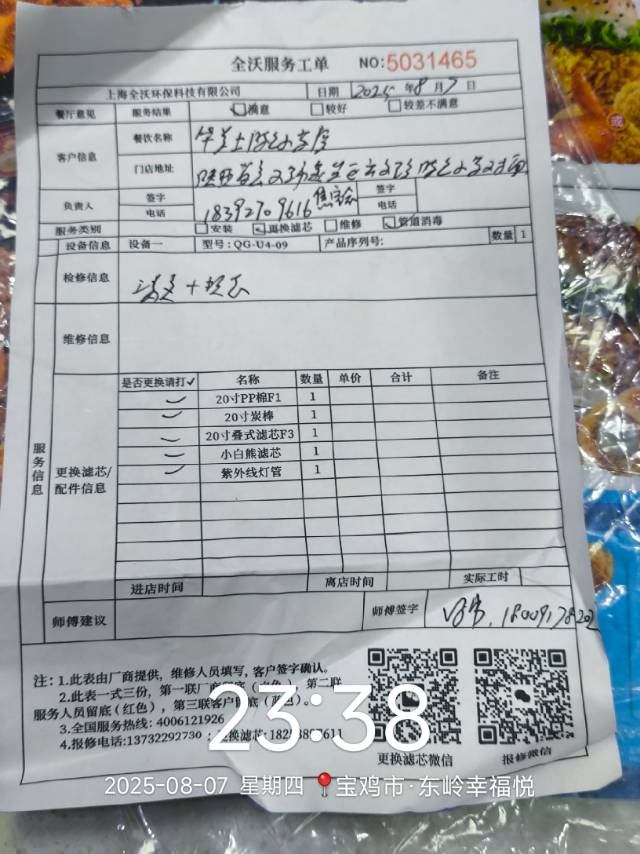 全沃服务工单 NO:5031465
上海全沃环保科技有限公司 日期 2025 年8月7日
餐厅意见 服务结果 满意 较好 较差不满意
客户信息 餐饮名称
门店地址
负责人 签字 电话 18392709616 签字 电话
服务类别 安装 更换滤芯 维修 管道消毒
设备信息 设备一 型号:QG-U4-09 产品序列号: 数量 1
服务信息
检修信息 清洗+换芯
维修信息
更换滤芯/配件信息
是否更换请打✓ 名称 数量 单价 合计 备注
20寸PP棉F1 1
20寸炭棒 1
20寸叠式滤芯F3 1
小白熊滤芯 1
紫外线灯管 1
进店时间 离店时间 实际工时
师傅建议 师傅签字
注:1.此表由厂商提供,维修人员填写,客户签字确认。
2.此表一式三份,第一联厂商留底(白色),第二联
服务人员留底(红色),第三联客户留底(蓝色)。
3.全国服务热线:4006121926
4.报修电话:13732292730
更换滤芯微信 报修微信
23:38
2025-08-07 星期四 宝鸡市·东岭幸福悦